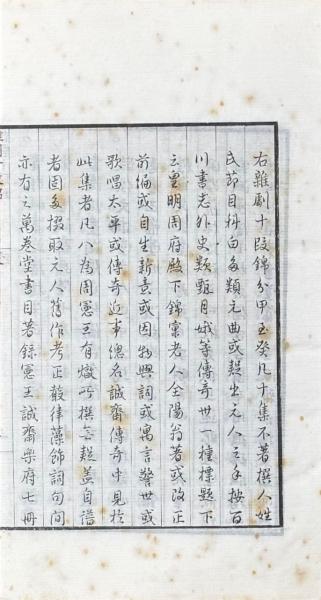 右雜劇十段錦分甲至癸凡十集不著撰人姓
氏節目科白多類元曲或疑出元人之手按百
川書志外史類甄月娥等傳奇卅一種標題下
云皇明周府殿下錦窠老人全陽翁著或改正
前編或自生新意或因物興詞或寓言警世或
歌唱太平或傳奇近事總名誠齋傳奇中見於
此集者凡八為周憲王有燉所撰無疑蓋自譜
者固多掇取元人舊作考正殽律藻飾詞句間
亦有之萬卷堂書目著錄憲王誠齋樂府七冊